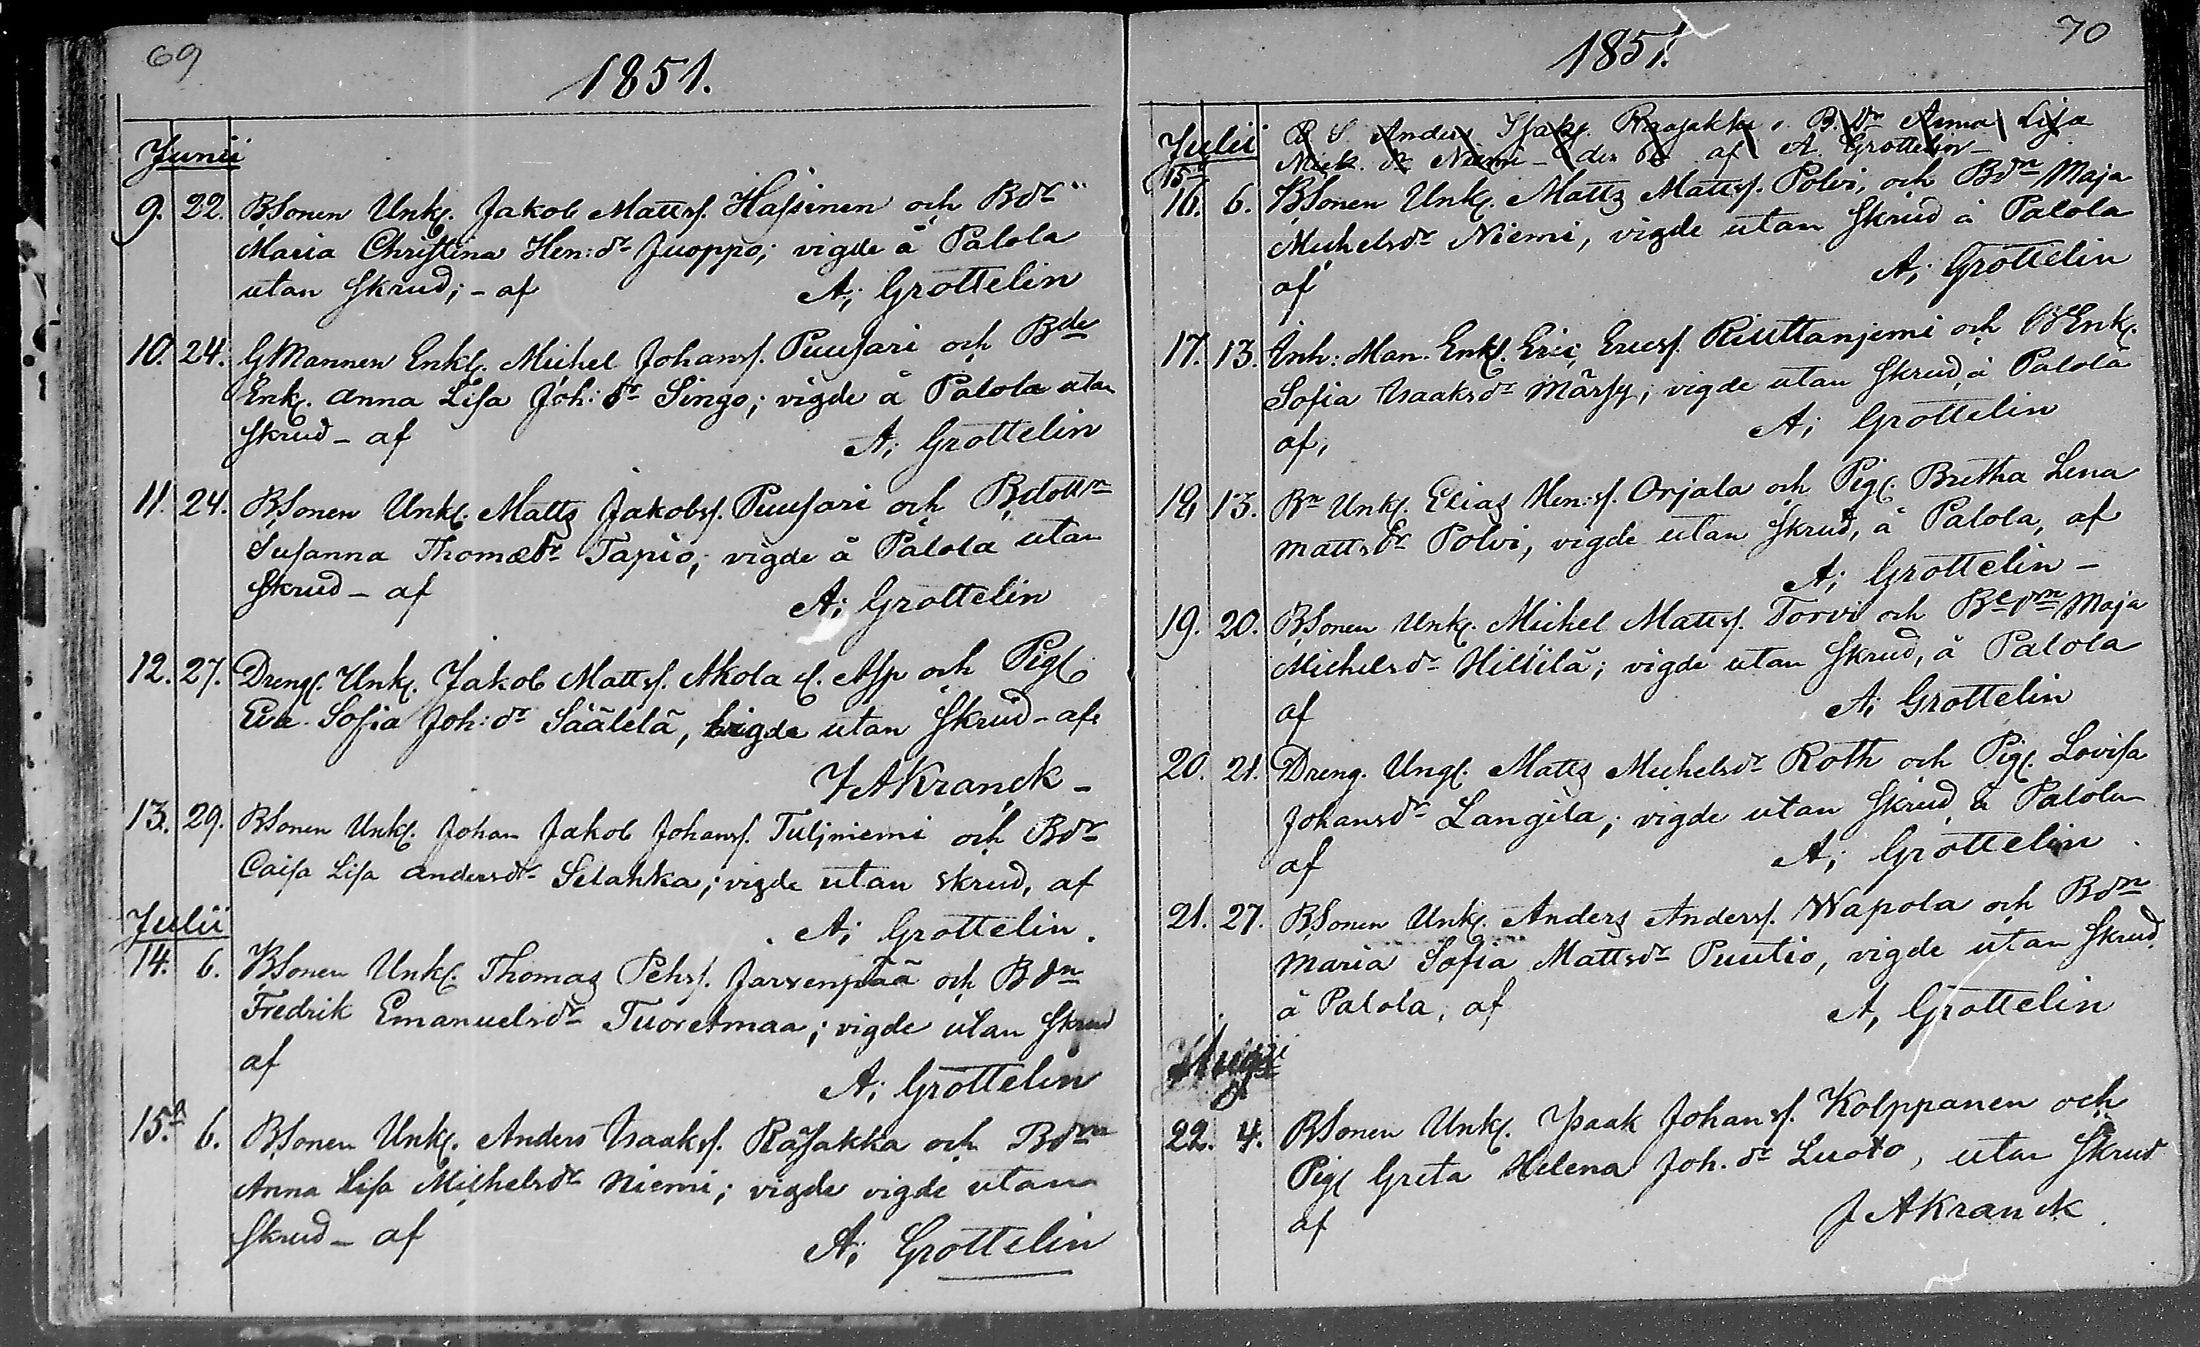 69
1851.
Junii
9. 22. BSonen Unk. Jakob Mattsf. Hassinen och Bdr
Maria Christina Hen: dr Juoppo; vigde å Palola
utan skrud; - af A; Grottelin
10. 24. GMannen Enkl. Michel Johansf. Puusari och Bde
Enk. Anna Lisa Joh: dr Singo; vigde å Palola utan
skrud - af A; Grottelin
11. 24. BSonen Unkl. Matts Jakobsf. Puusari och Bdottn
Susanna Thomædr Tapio; vigde å Palola utan
skrud - af A; Grottelin
12. 27. Drengl. Unk. Jakob Mattsf. Akola el. Asp och Pigl
Eva Sofia Joh: dr Säälelä, vigde utan skrud - af
J A Kranck -
13. 29. BSonen Unkl. Johan Jakob Johansf. Tuljniemi och Bdr
Caisa Lisa Andersdr Selahka; vigde utan skrud, af
A; Grottelin.
Julii
14. 6. BSonen Unkl. Thomas Pehrs. Jarvenpää och Bdn
Fredrik Emanuelsdr Tuoretmaa; vigde utan skrud
af A; Grottelin
15.a 6. BSonen Unkl. Anders Isaaksf. Räsakka och Bdrn
Anna Lisa Michelsdr Niemi; vigde vigde utan
skrud - af A; Grottelin
70
1851.
Julii B S. Anders Isaks. Raasakka o. B. Dr Anna Lisa
Mick. dr Niemi - den 6 af A. Grottelin -
15b
16. 6. BSonen Unkl. Matts Mattsf. Polvi, och Bdrn Maja
Michelsdr Niemi, vigde utan skrud å Palola
af A; Grottelin
17. 13. Inh: Man. Enkl. Eric Ericsf. Riuttanjemi och BEnk.
Sofia Isaaksdr Märsy; vigde utan skrud, å Palola
af, A; Grottelin
18, 13. Bn Unkl. Elias Hen: sf. Orjala och Pigl. Bretha Lena
Mattsdr Polvi, vigde utan skrud, å Palola, af
A; Grottelin -
19. 20. BSonen Unkl. Michel Mattsf. Torvi och Bedrn Maja
Michelsdr Hillilä; vigde utan skrud, å Palola
af A; Grottelin
20. 21. Dreng. Ungl. Matts Michelsdr Roth och Pigl. Lovisa
Johansdr Langila; vigde utan skrud å Palola
af A; Grottelin
21. 27. BSonen Unkl. Anders Andersf. Wapola och Bdrn
Maria Sofia Mattsdr Puutio, vigde utan skrud
å Palola, af A, Grottelin
Augusti
22. 4. BSonen Unkl. Isaak Johansf. Kolppanen och
Pigl Greta Helena Joh. dr Luoto, utan skrud
af J A Kranck